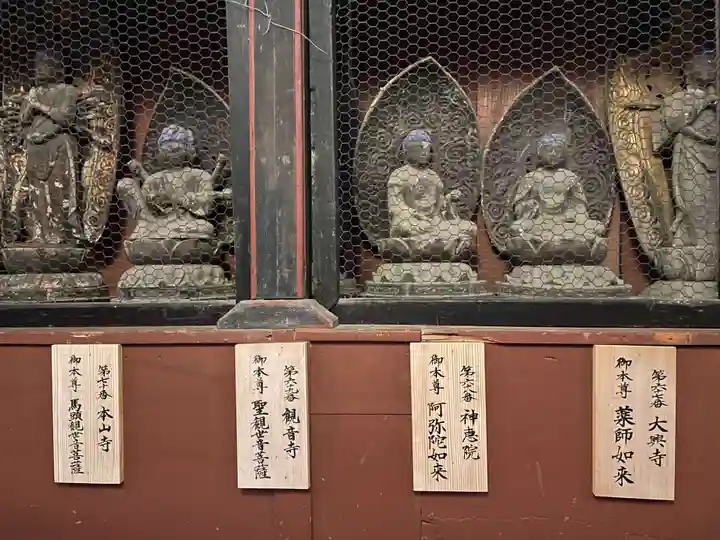 第六七番 大興寺
御本尊 薬師如来
第六八番 神恵院
御本尊 阿弥陀如来
第六九番 観音寺
御本尊 聖観世音菩薩
第七十番 本山寺
御本尊 馬頭観世音菩薩